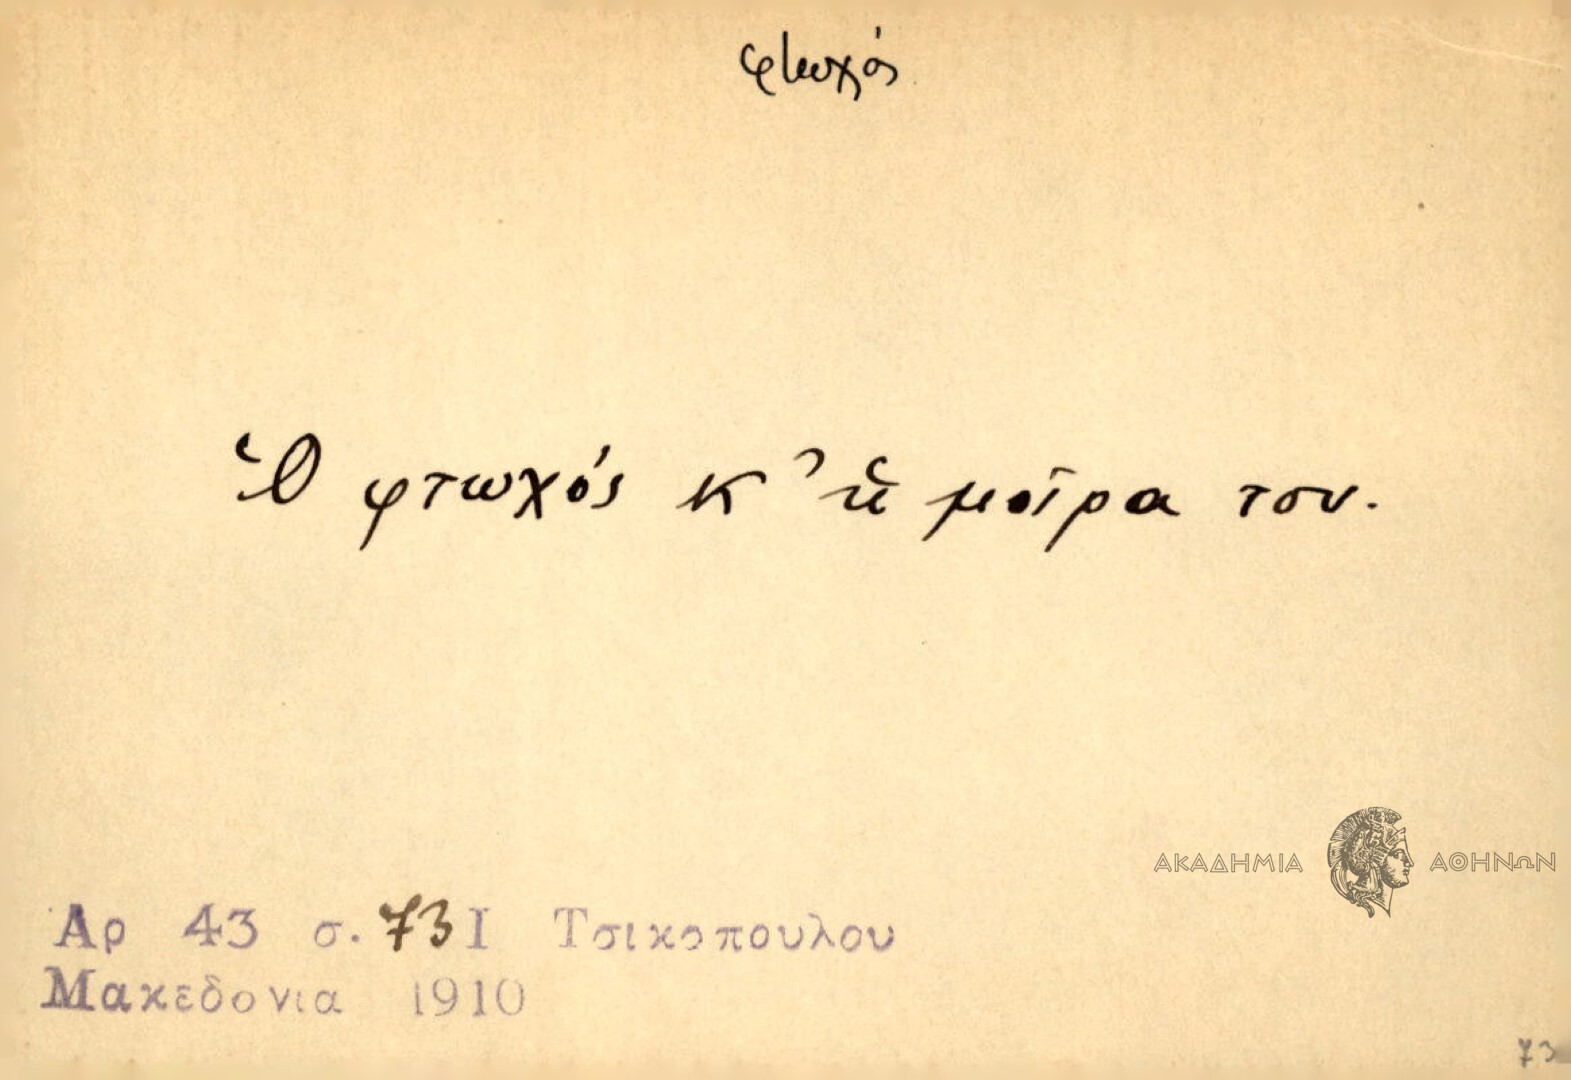 φτωχός
Ὁ φτωχός κ' ἡ μοῖρα του.
ΑΚΑΔΗΜΙΑ ΑΘΗΝΩΝ
Αρ 43 σ. 73 Ι Τσικοπουλου
Μακεδονια 1910
73